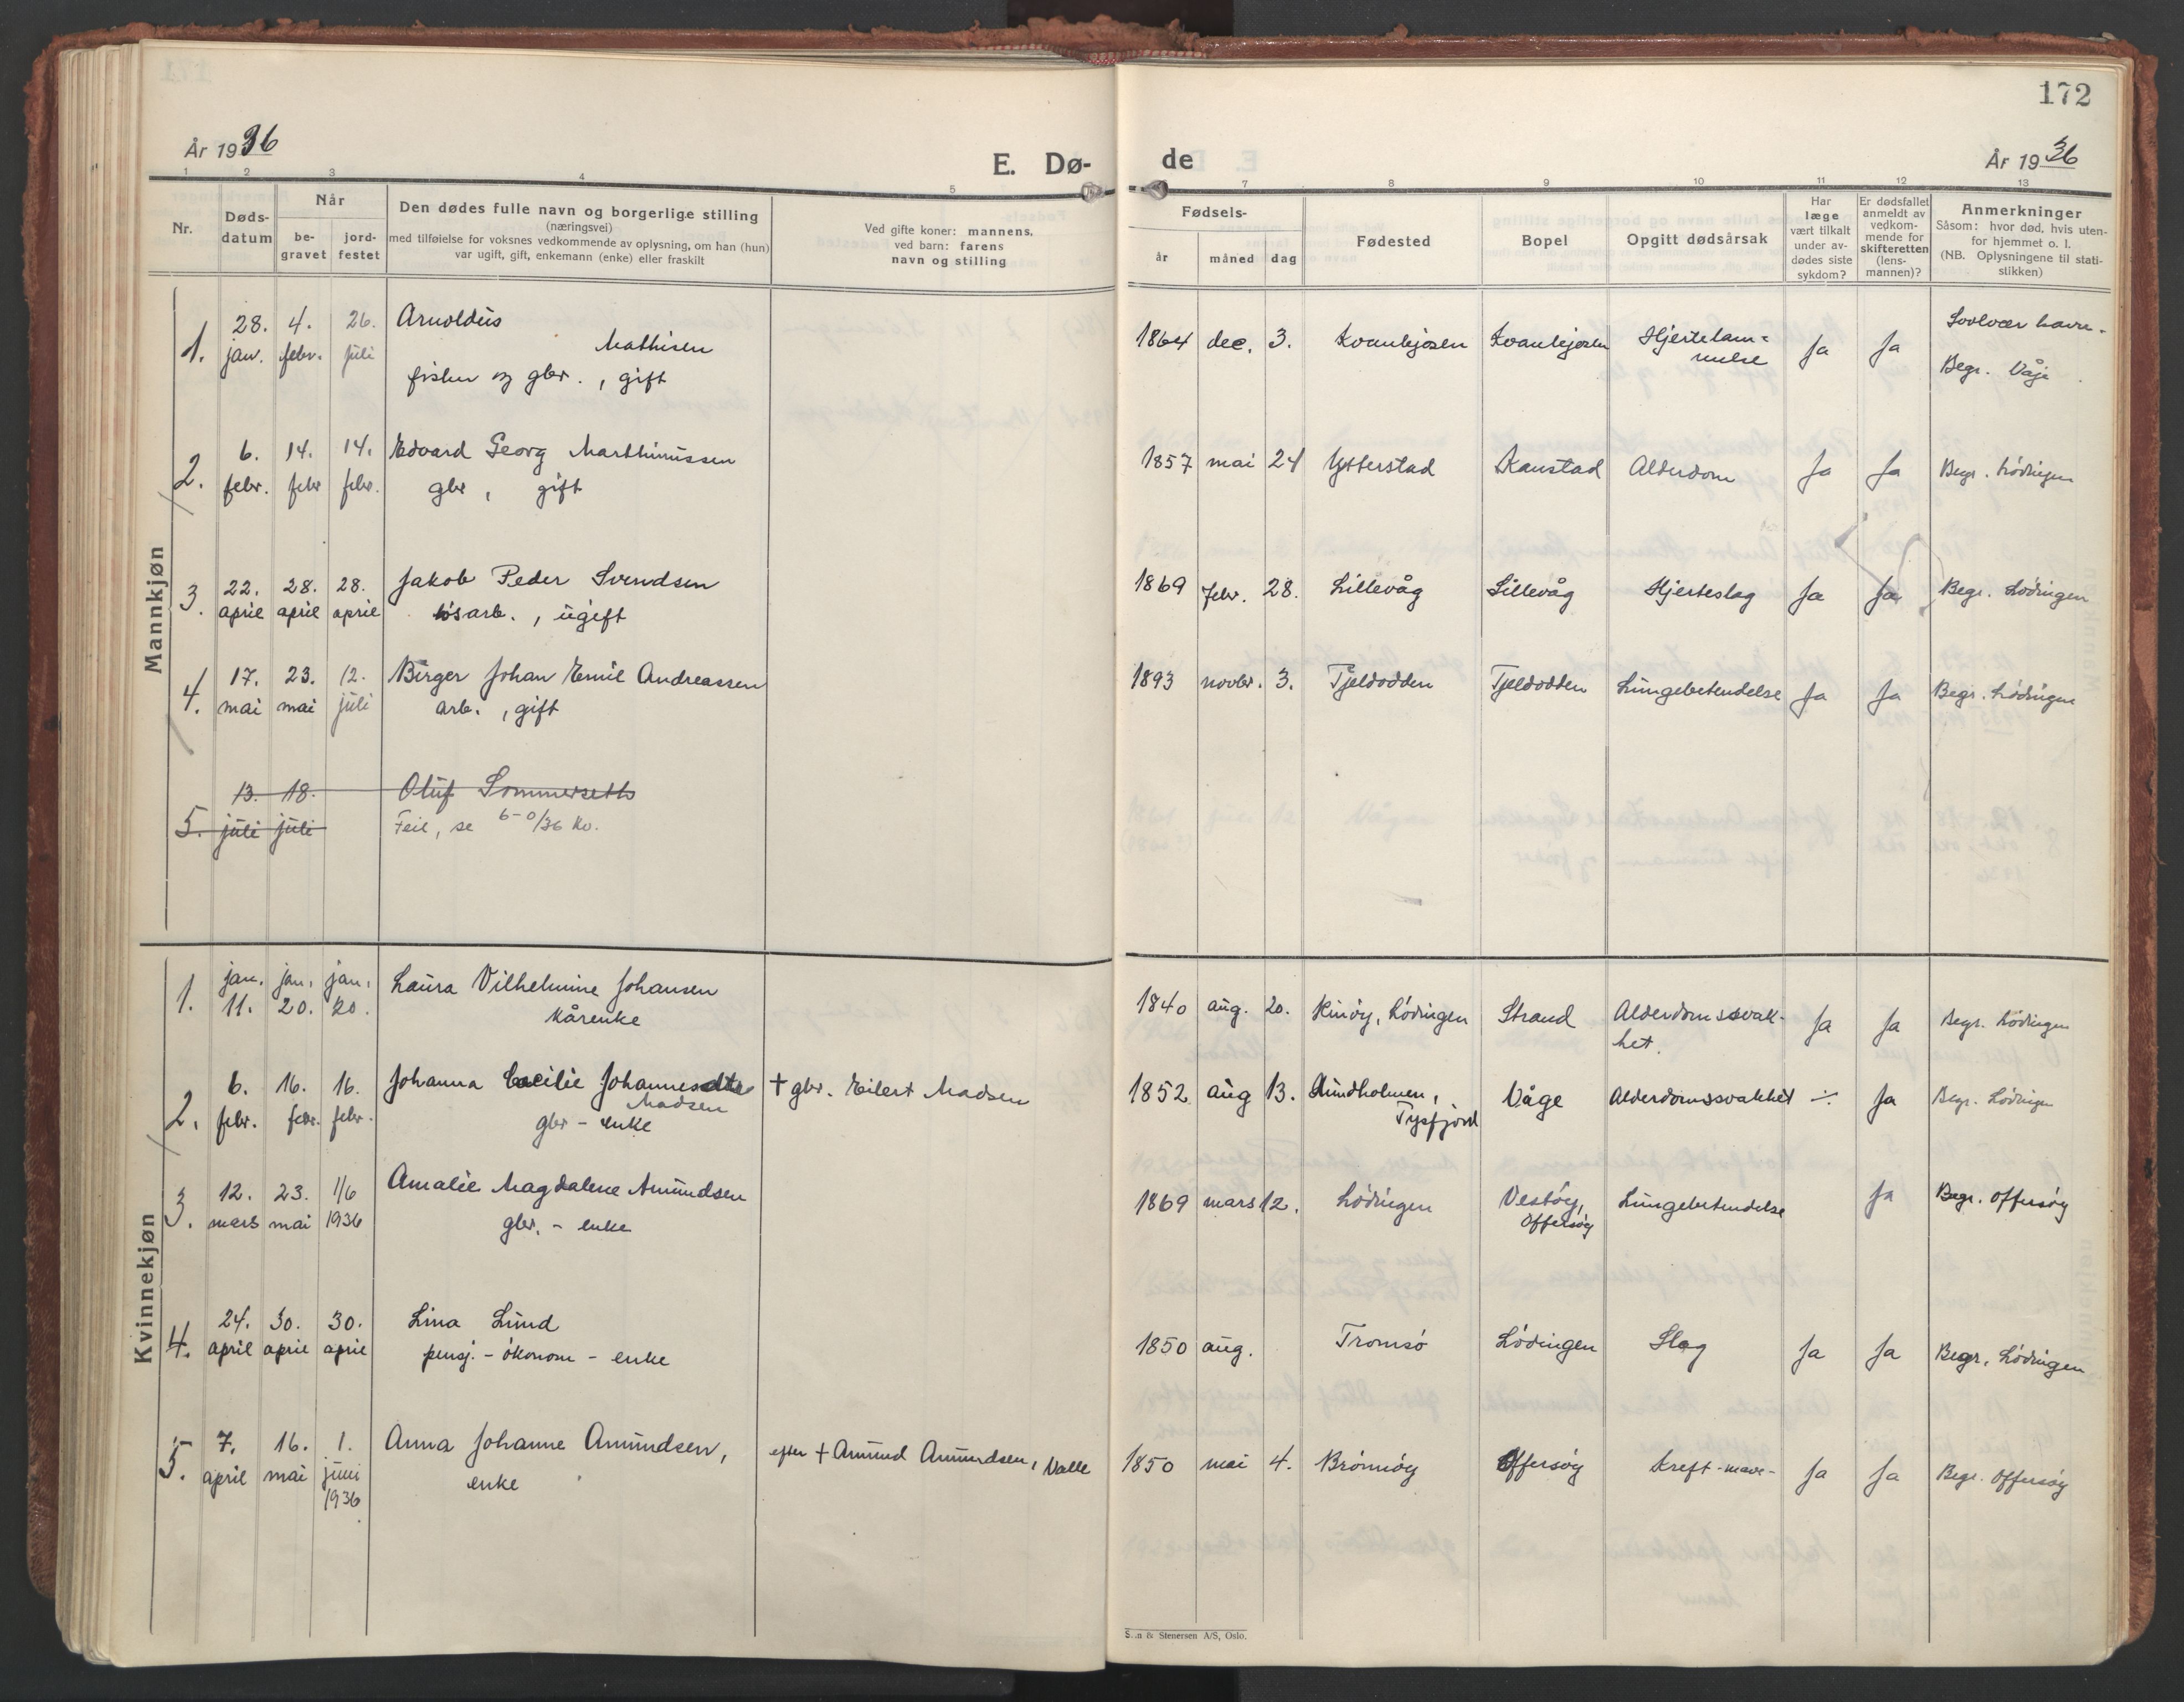 172
År 1936
E. Dø-
de
År 1936
1 2 3 4 5 7 8 9 10 11 12 13
Nr.
Døds-
datum
Når
be-
gravet
jord-
festet
Den dødes fulle navn og borgerlige stilling
(næringsvei)
med tilføielse for voksnes vedkommende av oplysning, om han (hun)
var ugift, gift, enkemann (enke) eller fraskilt
Ved gifte koner: mannens,
ved barn: farens
navn og stilling
Fødsels-
år måned dag
Fødested
Bopel
Opgitt dødsårsak
Har
læge
vært tilkalt
under av-
dødes siste
sykdom?
Er dødsfallet
anmeldt av
vedkom-
mende for
skifteretten
(lens-
mannen)?
Anmerkninger
Såsom: hvor død, hvis uten-
for hjemmet o. l.
(NB. Oplysningene til stati-
stikken)
Mannkjøn
1. 28. jan. 4. febr. 26. juli
Arnoldus
Mathisen
fisker og gbr., gift
1864 dec. 3. Kvankjosen Kvankjosen Hjertelam-
melse
Ja Ja
Svolvær havn.
Begr. Våje
2. 6. febr. 14. febr 14. febr.
Edvard Georg Marthinussen
gbr, gift
1857 mai 24 Ytterstad Kanstad Alderdom Ja Ja Begr. Lödingen
3. 22. april 28. april 28. april
Jakob Peder Svendsen
løsarb., ugift
1869 febr. 28. Lillevåg Lillevåg Hjerteslag Ja Ja Begr. Lödingen
4. 17. mai 23. mai 12. juli
Birger Johan Emil Andreassen
arb., gift
1893 novbr. 3. Tjeldodden Tjeldodden Lungebetendelse Ja Ja Begr. Lödingen
5. 13. juli 18. juli
Oluf Sommerseth
Feil, se 6-0/36 Kv.
Kvinnekjøn
1. jan. 11. jan. 20. jan. 20.
Laura Vilhelmine Johansen
kårenke
1840 aug. 20. Rinöy, Lödingen Strand Alderdomssvak-
het.
Ja Ja Begr. Lödingen
2. 6. febr. 16. febr. 16. febr.
Johanna Cecilie Johannesdtr
Madsen
gbr - enke
† gbr. Eilert Madsen
1852 aug 13. Lundholmen,
Tysfjord
Våge Alderdomssvakhet ./. Ja Begr. Lödingen
3. 12. mars 23. mai 1/6 1936
Amalie Magdalene Amundsen
gbr. - enke
1869 mars 12. Lödingen Vestöy,
Offersöy
Lungebetendelse Ja Begr. Offersöy
4. 24. april 30. april 30. april
Lina Lund
pensj. - ökonom - enke
1850 aug. Tromsö Lödingen Slag Ja Ja Begr. Lödingen
5. 7. april 16. mai 1. juni 1936
Anna Johanne Amundsen,
enke
efter † Amund Amundsen, Valle
1850 mai 4. Brönnöy Offersöy Kreft -mave- Ja Ja Begr. Offersöy
& Stenersen A/S, Oslo.